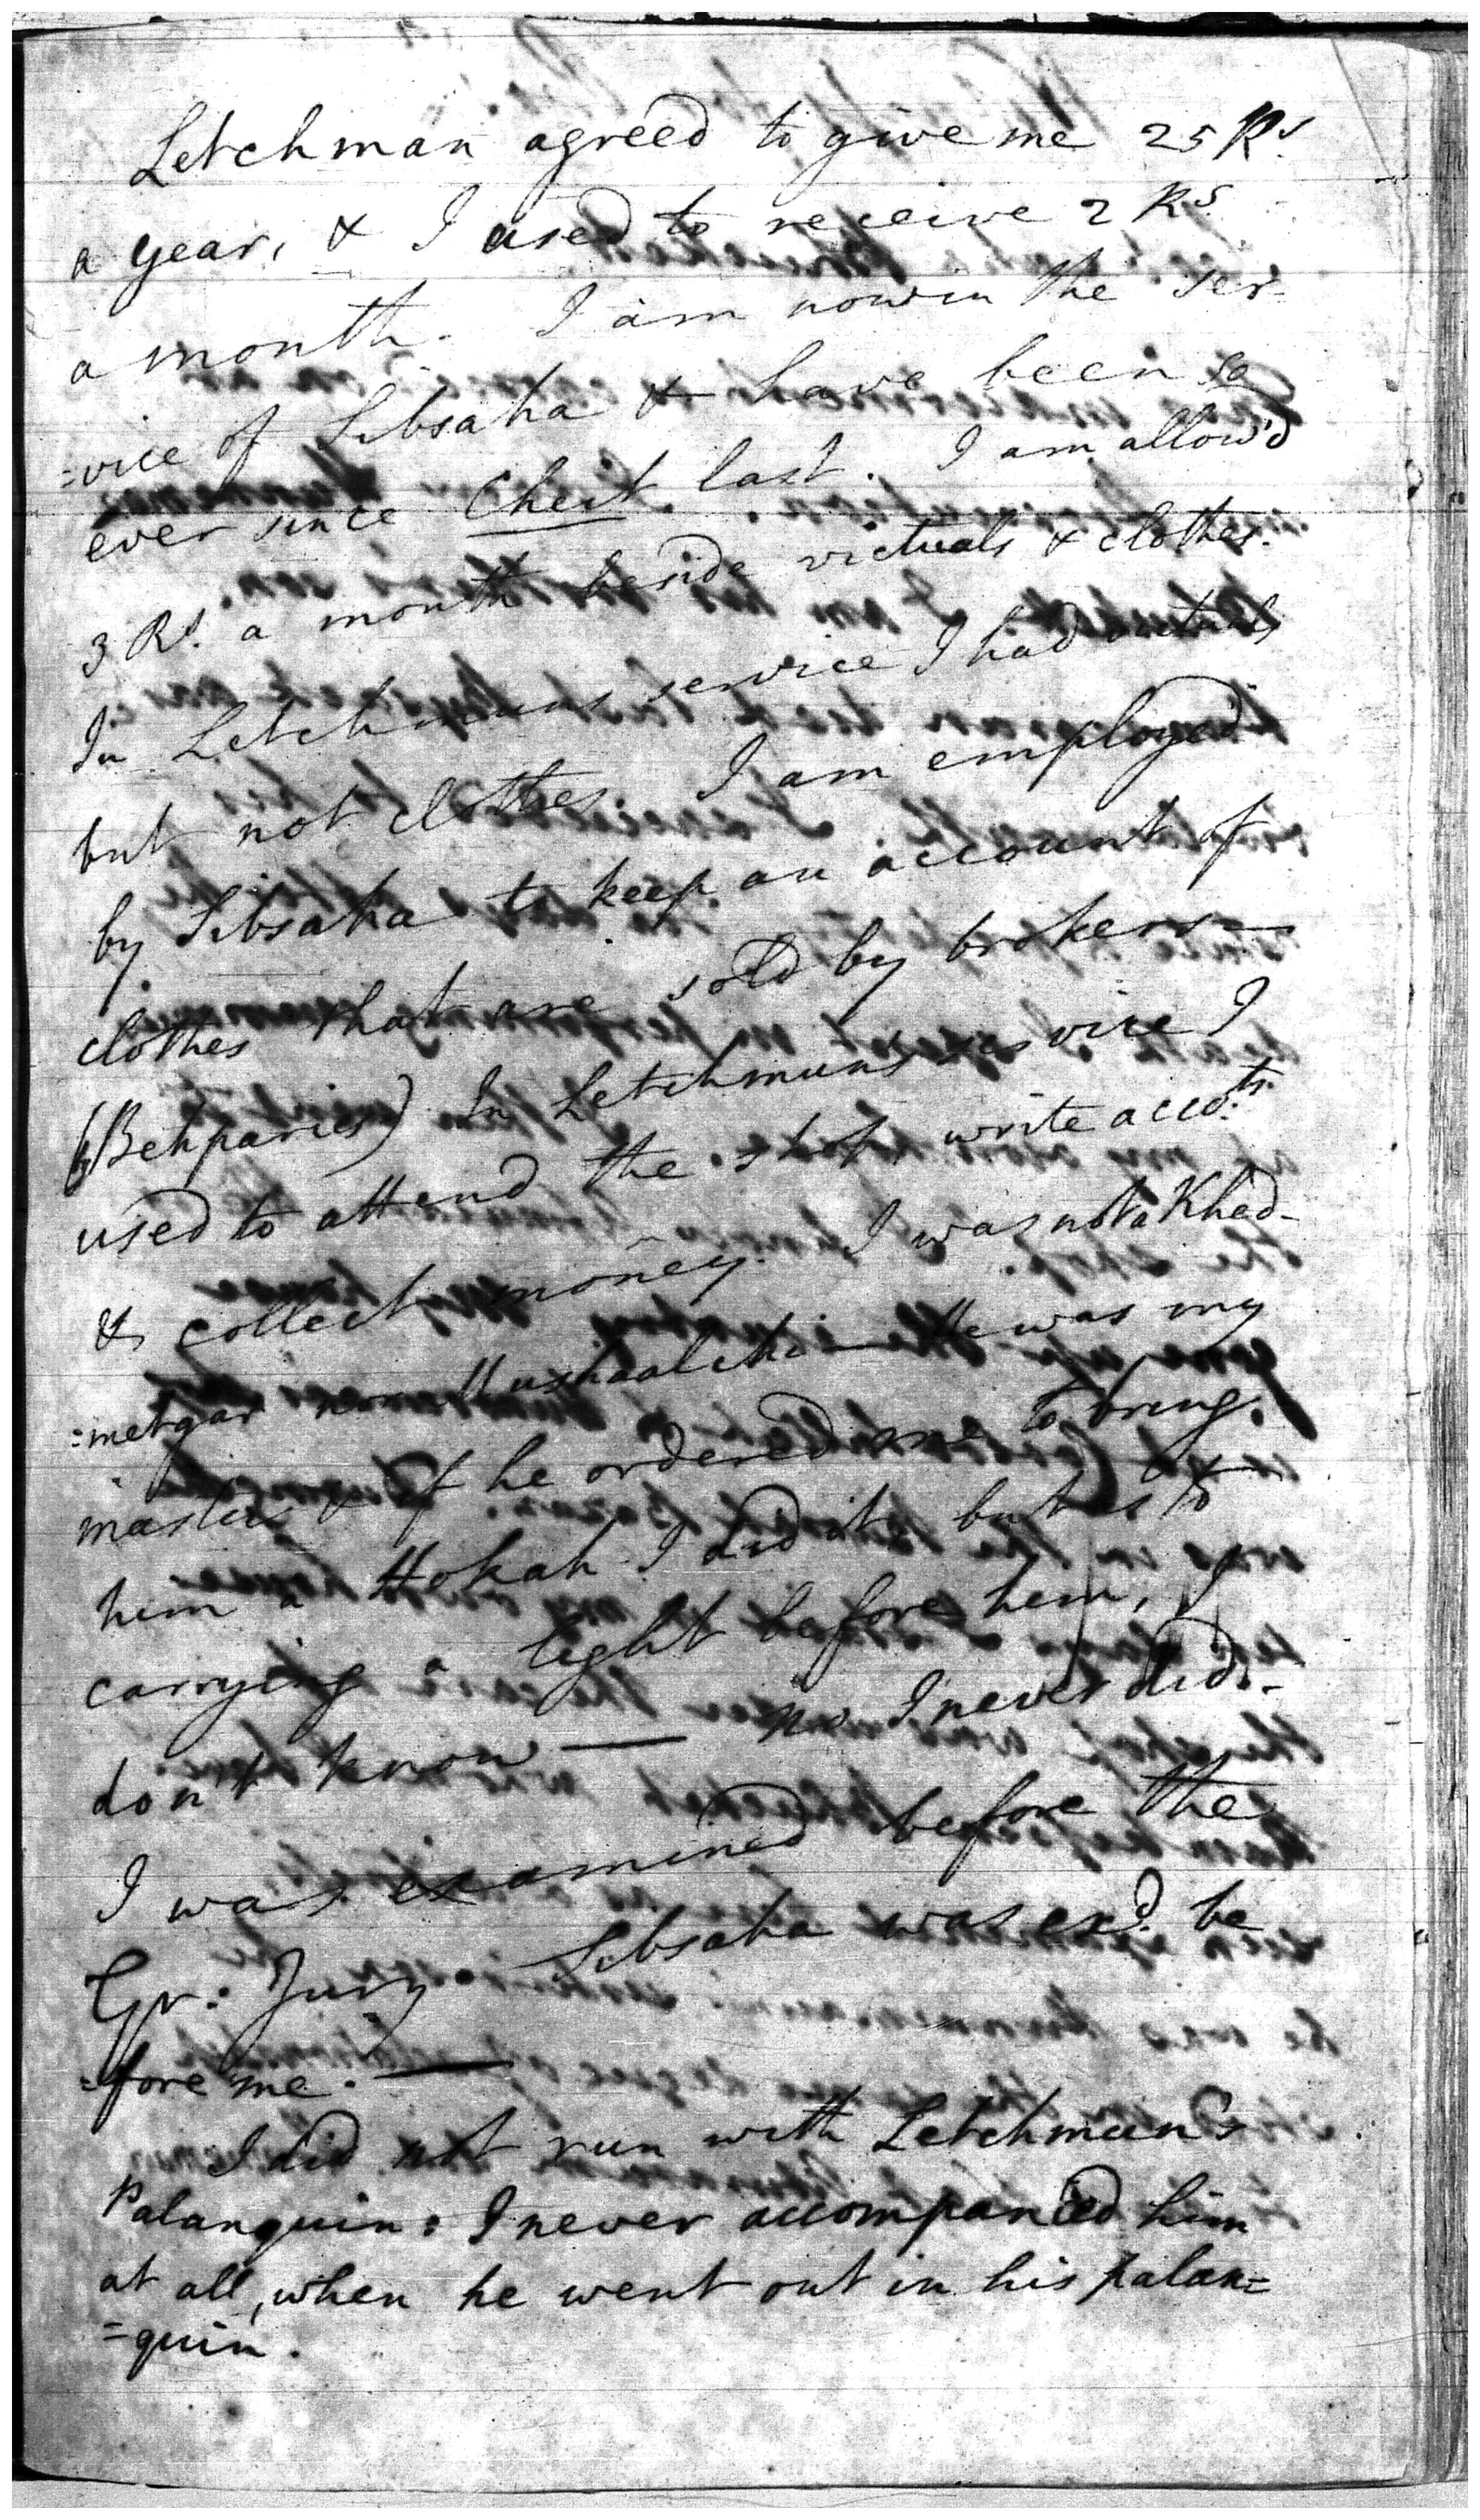 Letchman agreed to give me 25 Rs.
a year, & I used to receive 2 Rs.
a month. I am now in the ser-
=vice of Sibsaha & have been so
ever since Cheit last. I am allow'd
3 Rs. a month beside victuals & clothes.
In Letchmuns service I had victuals
but not clothes. I am employed
by Sibsaha to keep an account of
clothes that are sold by brokers —
(Behparies) In Letchmun's service I
used to attend the shop, write accots.
& collect money. I was not a Khed-
=metgar nor Mushaalchi — He was my
master & if he ordered me to bring
him a Hokah I did it, but as to
carrying a light before him, I
don't know — no I never did. -
I was examined before the
Gr: Jury. Sibsaha was exd. be
=fore me. —
I did not run with Letchmun's
Palanquin: I never accompanied him
at all, when he went out in his palan=
=quin.